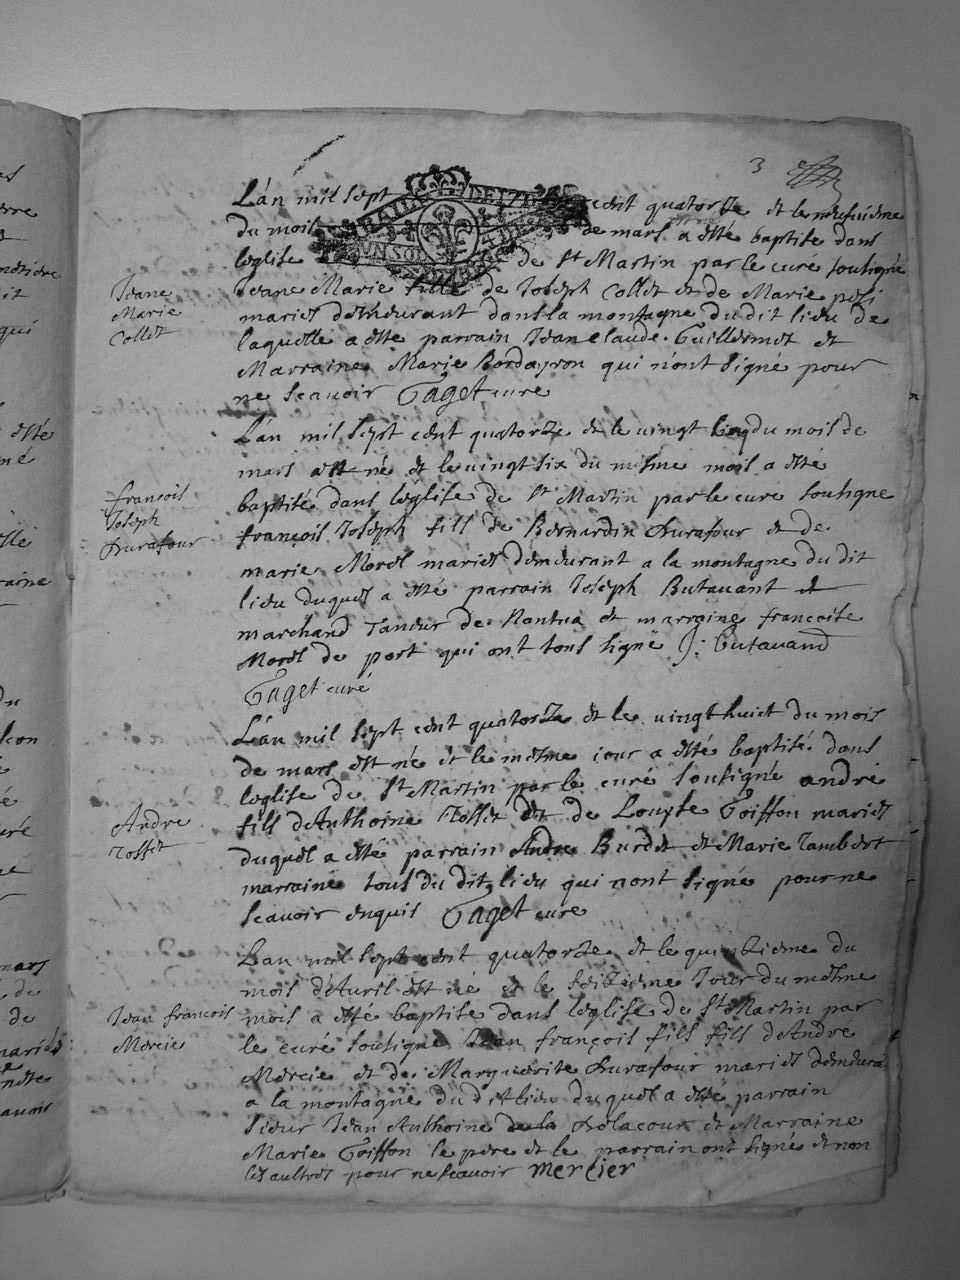 3
L'an mil sept cent quatorze et le neufuieme
du mois de mars a esté baptisé dans
leglise de St Martin par le curé soutigné
Jeane Marie fille de Joseph Collet et de Marie
mariés demeurant dans la montagne du dit lieu de
laquelle a esté parrain Jean claude Guillermet et
Marraine Marie Bordayron qui n'ont signé pour
ne scavoir Gaget curé
Jeane
Marie
Collet
L'an mil sept cent quatorze et le vingt cinq du mois de
mars est né et le vingt six du mesme mois a esté
baptisé dans leglise de St Martin par le cure soutigne
françois Joseph fils de Bernardin Durafour et de
marie Morel mariés demeurant a la montagne du dit
lieu duquel a esté parrain Joseph Butauant
marchand Taneur de Nantua et marraine francoise
Morel de port qui ont tous signe J: Butauand
Gaget curé
françois
Joseph
Durafour
L'an mil sept cent quatorze et le vingt huict du mois
de mars est né et le mesme iour a esté baptisé dans
leglise de St Martin par le curé soutigné andré
fils d'Anthoine Tosset et de Louyse Goiffon mariés
duquel a esté parrain Andre Burdet et Marie Jambert
marraine tous du dit lieu qui n'ont signé pour ne
scavoir enquis Gaget cure
Andre
Tosset
L'an mil sept cent quatorze et le quinzieme du
mois d'Auril est né et le seizieme Jour du mesme
mois a esté baptisé dans leglise de St Martin par
le curé soutigné Jean françois fils fils d'Andre
Mercie et de Marguerite Durafour mariés demeura
a la montagne du dit lieu duquel a esté parrain
sieur Jean Anthoine de la Delacour et Marraine
Marie Goiffon le pere et le parrain ont signé et non
les aultres pour ne scauoir mercier
Jean françois
Mercie